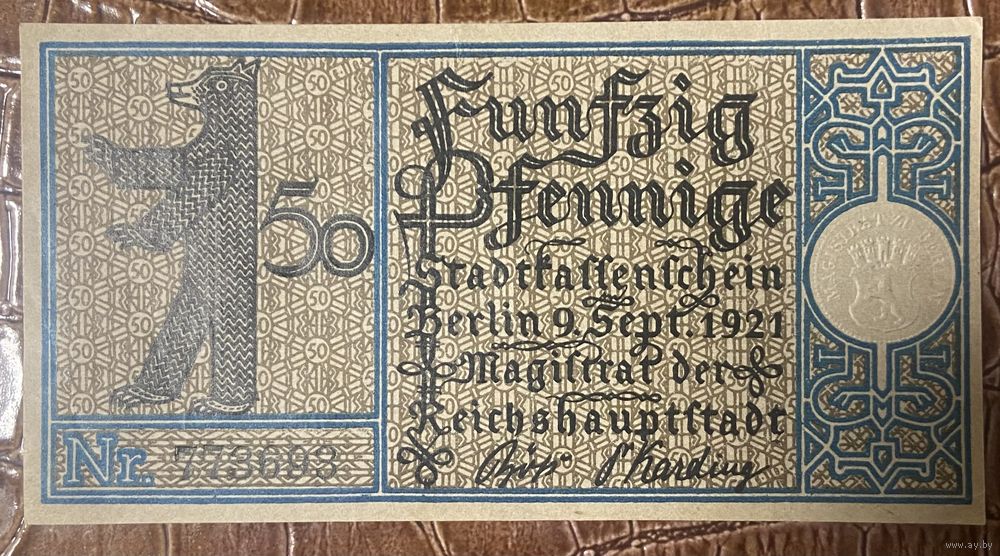 50
Funfzig
Pfennige
Stadtkassenschein
Berlin 9. Sept. 1921
Magistrat der
Reichshauptstadt
Nr. 773693
www.ay.by